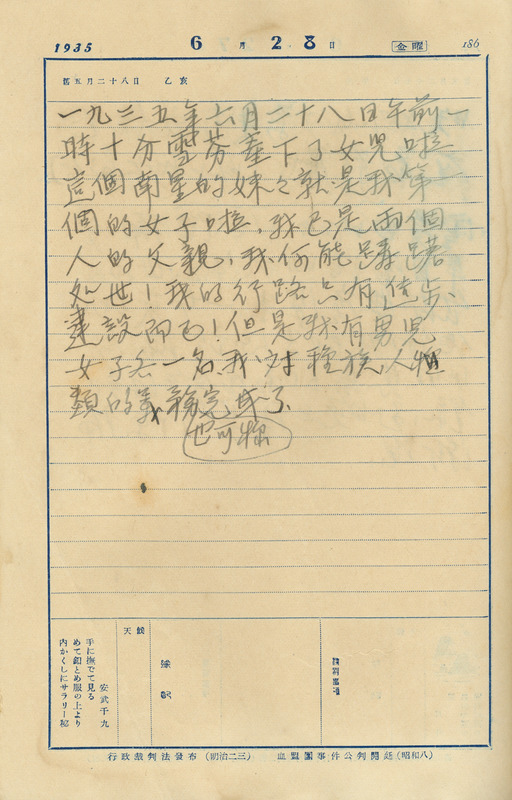 1935 6月28日 金曜 186
第五月二十八日 乙亥
一九三五年六月二十八日午前一
時十分雪芬産下了女兒啦
這個南星的妹々就是我第一
個的女子啦、我已是兩個
人的父親、我何能躊躇
処世！我的行路只有進步、
建設而已！但是我有男児
女子各一名、我対種族、人
類的義務完成了
也可称
天候
予記
手に撫でて見る
めて釦とめ服の上より
内かくしにサラリー秘
安武千丸
行政裁判法發布（明治二三） 血盟團事件公判開廷（昭和八）